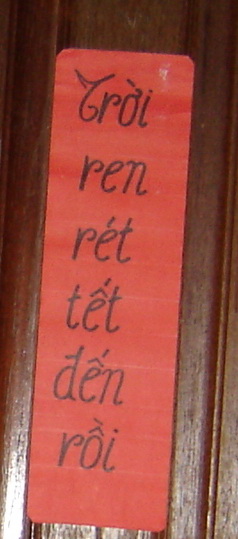 Trời
ren
rét
tết
đến
rồi